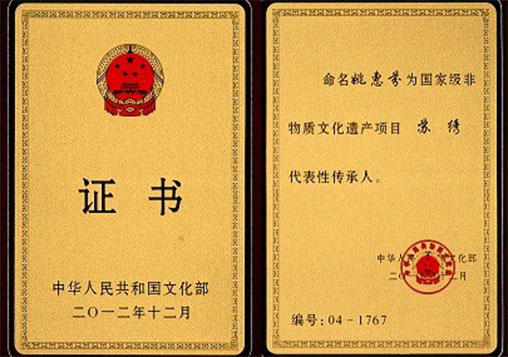 证书
中华人民共和国文化部
二〇一二年十二月
命名姚惠芬为国家级非
物质文化遗产项目 苏绣
代表性传承人。
中华人民共和国文化部
二〇一二年十二月
编号:04-1767